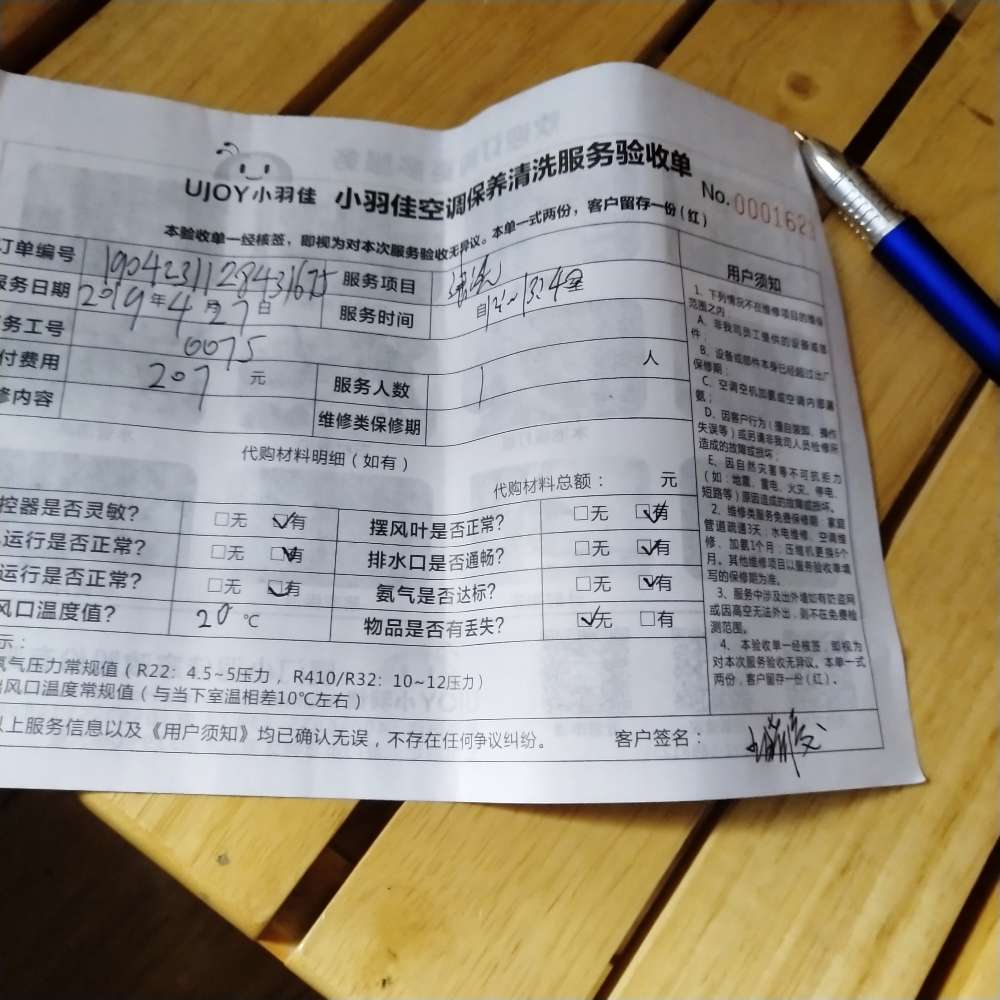 UJOY小羽佳 小羽佳空调保养清洗服务验收单
No.0001623
本验收单一经核签，即视为对本次服务验收无异议。本单一式两份，客户留存一份(红)
订单编号 1904231128431675 服务项目 清洗
服务日期 2019年4月27日 服务时间
务工号 0075
付费用 207元 服务人数 1 人
修内容 维修类保修期
代购材料明细（如有）
代购材料总额： 元
控器是否灵敏? □无 ☑有 摆风叶是否正常? □无 ☑有
运行是否正常? □无 ☑有 排水口是否通畅? □无 ☑有
运行是否正常? □无 ☑有 氨气是否达标? □无 ☑有
风口温度值? 20 ℃ 物品是否有丢失? ☑无 □有
示：
氨气压力常规值（R22：4.5~5压力，R410/R32：10~12压力）
出风口温度常规值（与当下室温相差10℃左右）
以上服务信息以及《用户须知》均已确认无误，不存在任何争议纠纷。 客户签名：
用户须知
1、下列情况不在维修项目的维保
范围之内：
A、非我司员工提供的设备或部
件；
B、设备或部件本身已经超过出厂
保修期；
C、空调空机加氨或空调内部漏
氨；
D、因客户行为（擅自装卸、操作
失误等）或另请非我司人员检修所
造成的故障或损坏；
E、因自然灾害等不可抗拒力
（如：地震、雷电、火灾、停电、
短路等）原因造成的故障或损坏。
2、维修类服务免费保修期：家庭
管道疏通3天；水电维修、空调维
修、加氨1个月；压缩机更换6个
月。其他维修项目以服务验收单填
写的保修期为准。
3、服务中涉及出外墙如有防盗网
或因高空无法外出，则不在免费检
测范围。
4、本验收单一经核签，即视为
对本次服务验收无异议。本单一式
两份，客户留存一份（红）。